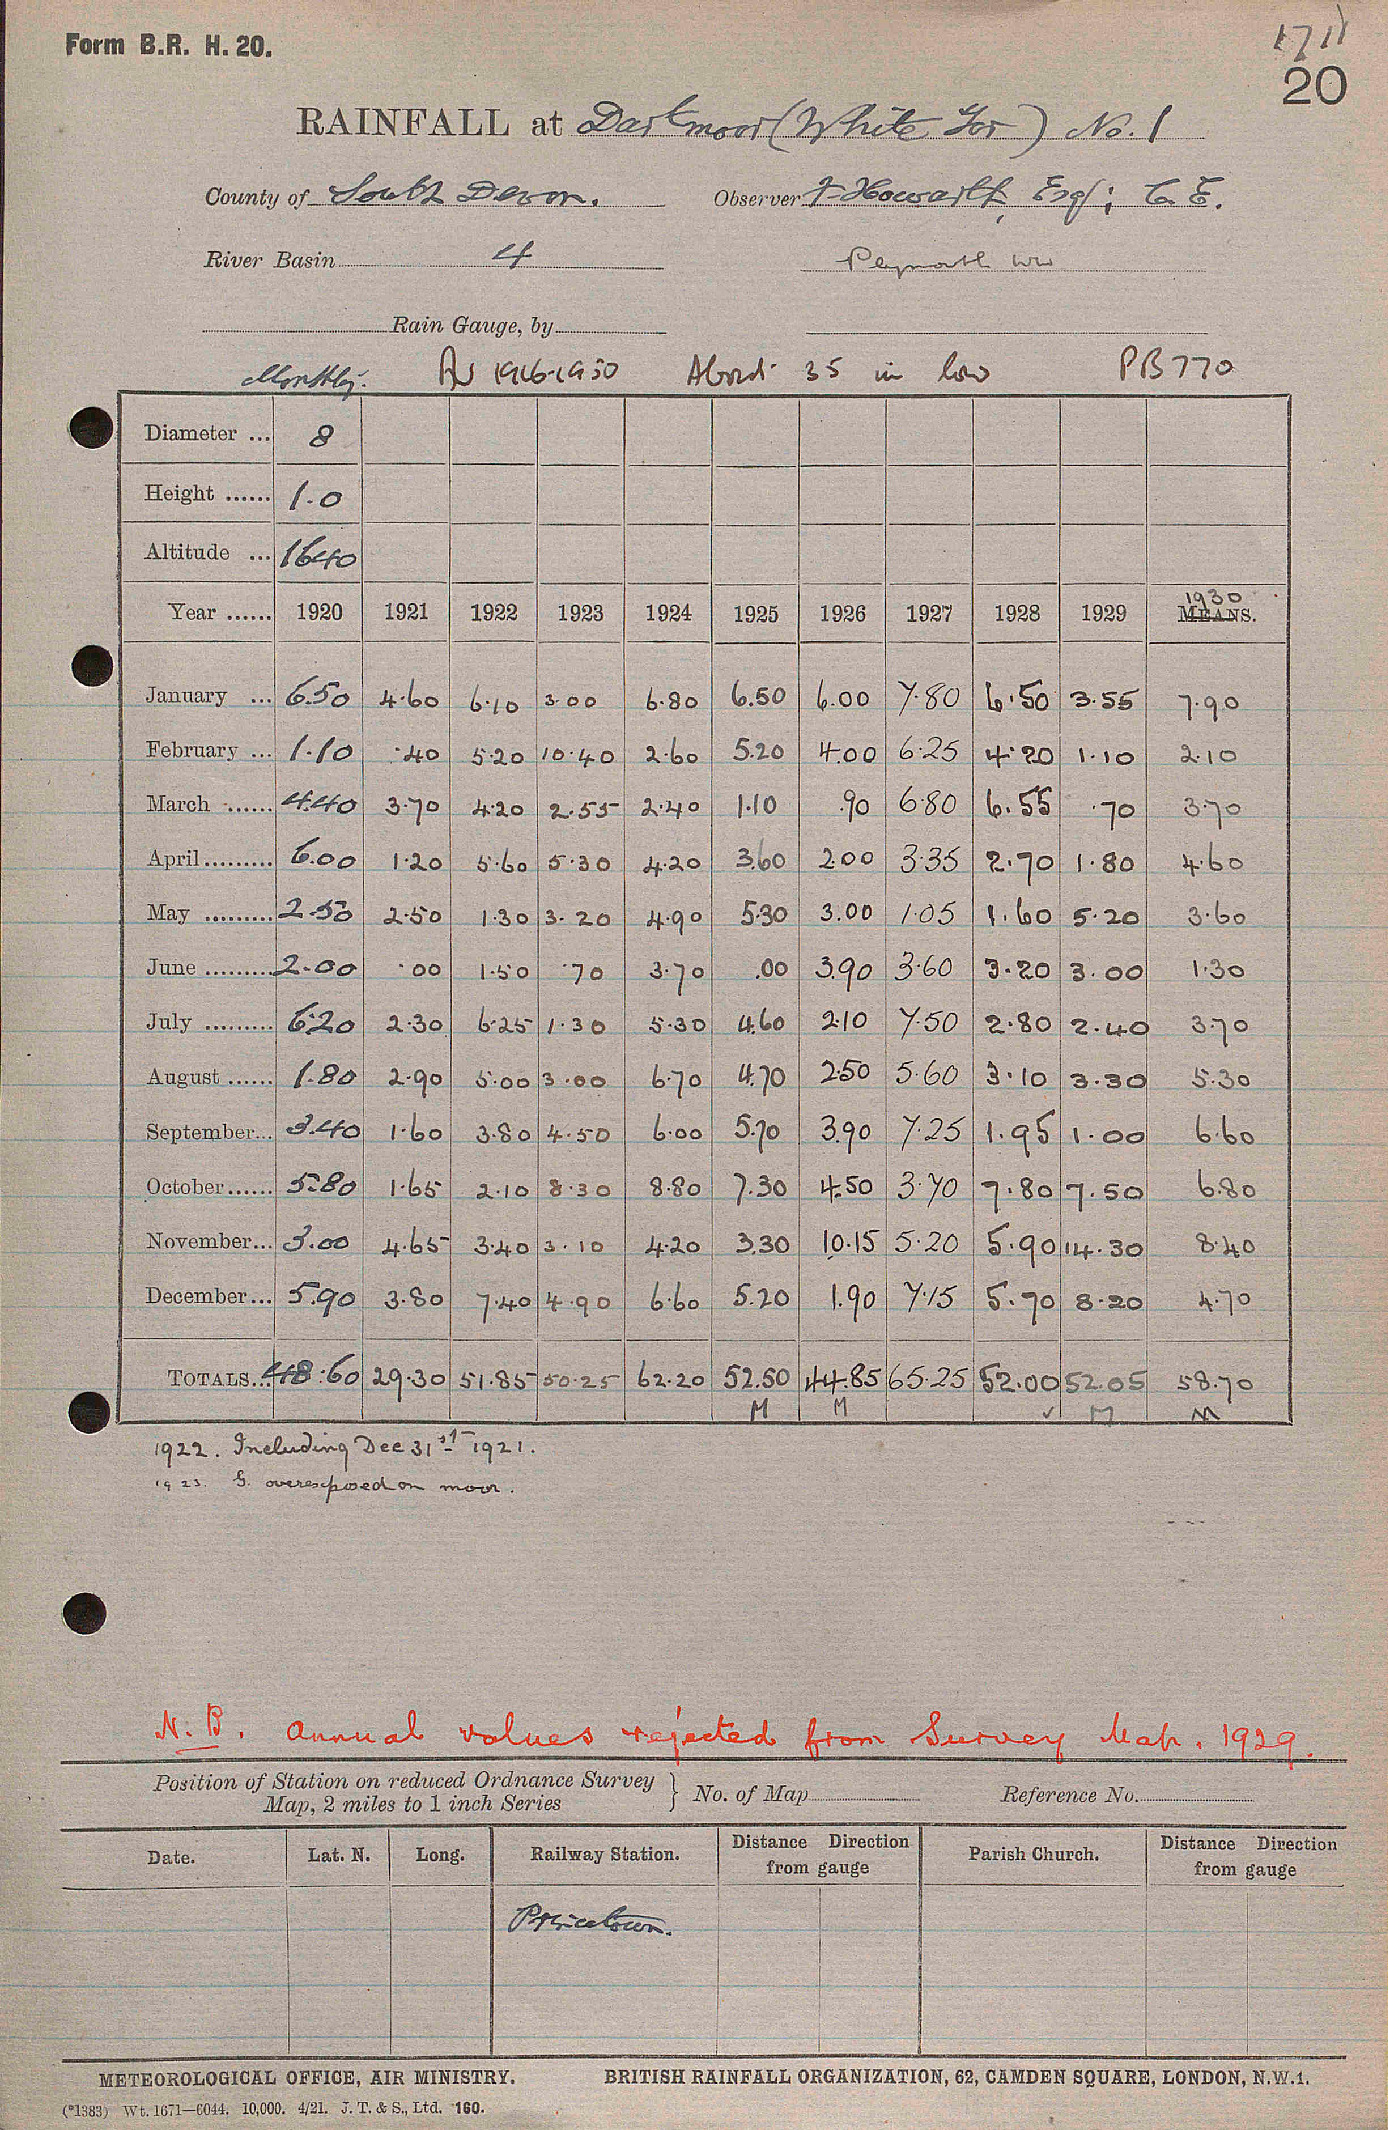 Form B.R. H. 20.
1711
20
RAINFALL at Dartmoor (White Tor) No. 1
County of South Devon. Observer F Howarth, Esq; C. E.
River Basin 4 Plymouth WW
Rain Gauge, by
Monthly. Av 1916-1950 35 in low PB770
Diameter ... 8
Height ...... 1.0
Altitude ... 1640
Year ...... 1920 1921 1922 1923 1924 1925 1926 1927 1928 1929 1930 MEANS.
January ... 6.50 4.60 6.10 3.00 6.80 6.50 6.00 7.80 6.50 3.55 7.90
February ... 1.10 .40 5.20 10.40 2.60 5.20 4.00 6.25 4.20 1.10 2.10
March ...... 4.40 3.70 4.20 2.55 2.40 1.10 .90 6.80 6.55 .70 3.70
April ......... 6.00 1.20 5.60 5.30 4.20 3.60 2.00 3.35 2.70 1.80 4.60
May ......... 2.50 2.50 1.30 3.20 4.90 5.30 3.00 1.05 1.60 5.20 3.60
June ......... 2.00 .00 1.50 .70 3.70 .00 3.90 3.60 3.20 3.00 1.30
July ......... 6.20 2.30 6.25 1.30 5.30 4.60 2.10 7.50 2.80 2.40 3.70
August ...... 1.80 2.90 5.00 3.00 6.70 4.70 2.50 5.60 3.10 3.30 5.30
September... 3.40 1.60 3.80 4.50 6.00 5.70 3.90 7.25 1.95 1.00 6.60
October...... 5.80 1.65 2.10 8.30 8.80 7.30 4.50 3.70 7.80 7.50 6.80
November... 3.00 4.65 3.40 3.10 4.20 3.30 10.15 5.20 5.90 14.30 8.40
December... 5.90 3.80 7.40 4.90 6.60 5.20 1.90 7.15 5.70 8.20 4.70
TOTALS... 48.60 29.30 51.85 50.25 62.20 52.50 44.85 65.25 52.00 52.05 58.70
M M ✓ M M
1922. Including Dec 31st 1921.
1923. G. overexposed on moor.
N.B. Annual values rejected from Survey Map. 1929.
Position of Station on reduced Ordnance Survey
Map, 2 miles to 1 inch Series } No. of Map Reference No.
Date. Lat. N. Long. Railway Station. Distance Direction from gauge Parish Church. Distance Direction from gauge
Princetown.
METEOROLOGICAL OFFICE, AIR MINISTRY. BRITISH RAINFALL ORGANIZATION, 62, CAMDEN SQUARE, LONDON, N.W.1.
(*1383) Wt. 1671—6044. 10,000. 4/21. J. T. & S., Ltd. 160.